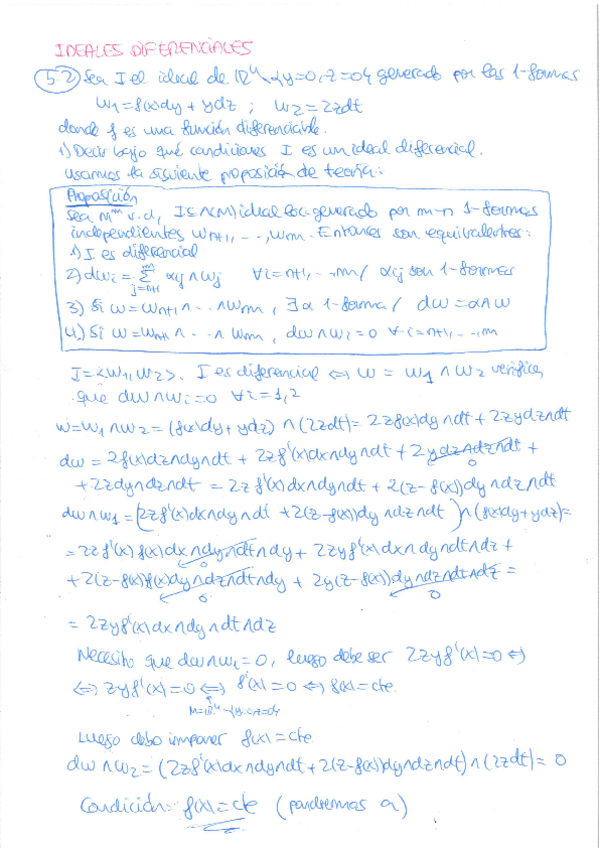 IDEALES DIFERENCIALES
5.2) Sea I el ideal de ℝ⁴\{y=0, z=0} generado por las 1-formas
w₁ = f(x)dy + ydz ; w₂ = 2zdt
donde f es una función diferenciable.
1) Decir bajo qué condiciones I es un ideal diferencial.
usamos la siguiente proposición de teoría:
Proposición
Sea Mᵐ v.d., I⊆Λ(M) ideal loc. generado por m-n 1-formas
independientes wₙ₊₁, ..., wₘ. Entonces son equivalentes:
1) I es diferencial
2) dwᵢ = Σ_{j=n+1}^{m} αᵢⱼ ∧ wⱼ ∀i=n+1, ..., m / αᵢⱼ son 1-formas
3) Si w = wₙ₊₁ ∧ ... ∧ wₘ, ∃α 1-forma / dw = α∧w
4) Si w = wₙ₊₁ ∧ ... ∧ wₘ, dw∧wᵢ = 0 ∀i=n+1, ..., m
I = <w₁, w₂>. I es diferencial ⟺ w = w₁ ∧ w₂ verifica
que dw∧wᵢ = 0 ∀i=1,2
w = w₁∧w₂ = (f(x)dy + ydz) ∧ (2zdt) = 2zf(x)dy∧dt + 2zydz∧dt
dw = 2f(x)dz∧dy∧dt + 2zf'(x)dx∧dy∧dt + 2ydz∧dz∧dt +
0
+ 2zdy∧dz∧dt = 2zf'(x)dx∧dy∧dt + 2(z-f(x))dy∧dz∧dt
dw∧w₁ = (2zf'(x)dx∧dy∧dt + 2(z-f(x))dy∧dz∧dt) ∧ (f(x)dy+ydz) =
= 2zf'(x)f(x)dx∧dy∧dt∧dy + 2zyf'(x)dx∧dy∧dt∧dz +
0
+ 2(z-f(x))f(x)dy∧dz∧dt∧dy + 2y(z-f(x))dy∧dz∧dt∧dz =
0 0
= 2zyf'(x)dx∧dy∧dt∧dz
Necesito que dw∧w₁ = 0, luego debe ser 2zyf'(x) = 0 ⟺
⟺ zyf'(x) = 0 ⟺ f'(x) = 0 ⟺ f(x) = cte.
Luego debo imponer f(x) = cte
dw∧w₂ = (2zf'(x)dx∧dy∧dt + 2(z-f(x))dy∧dz∧dt) ∧ (2zdt) = 0
Condición: f(x) = cte (pondremos a)